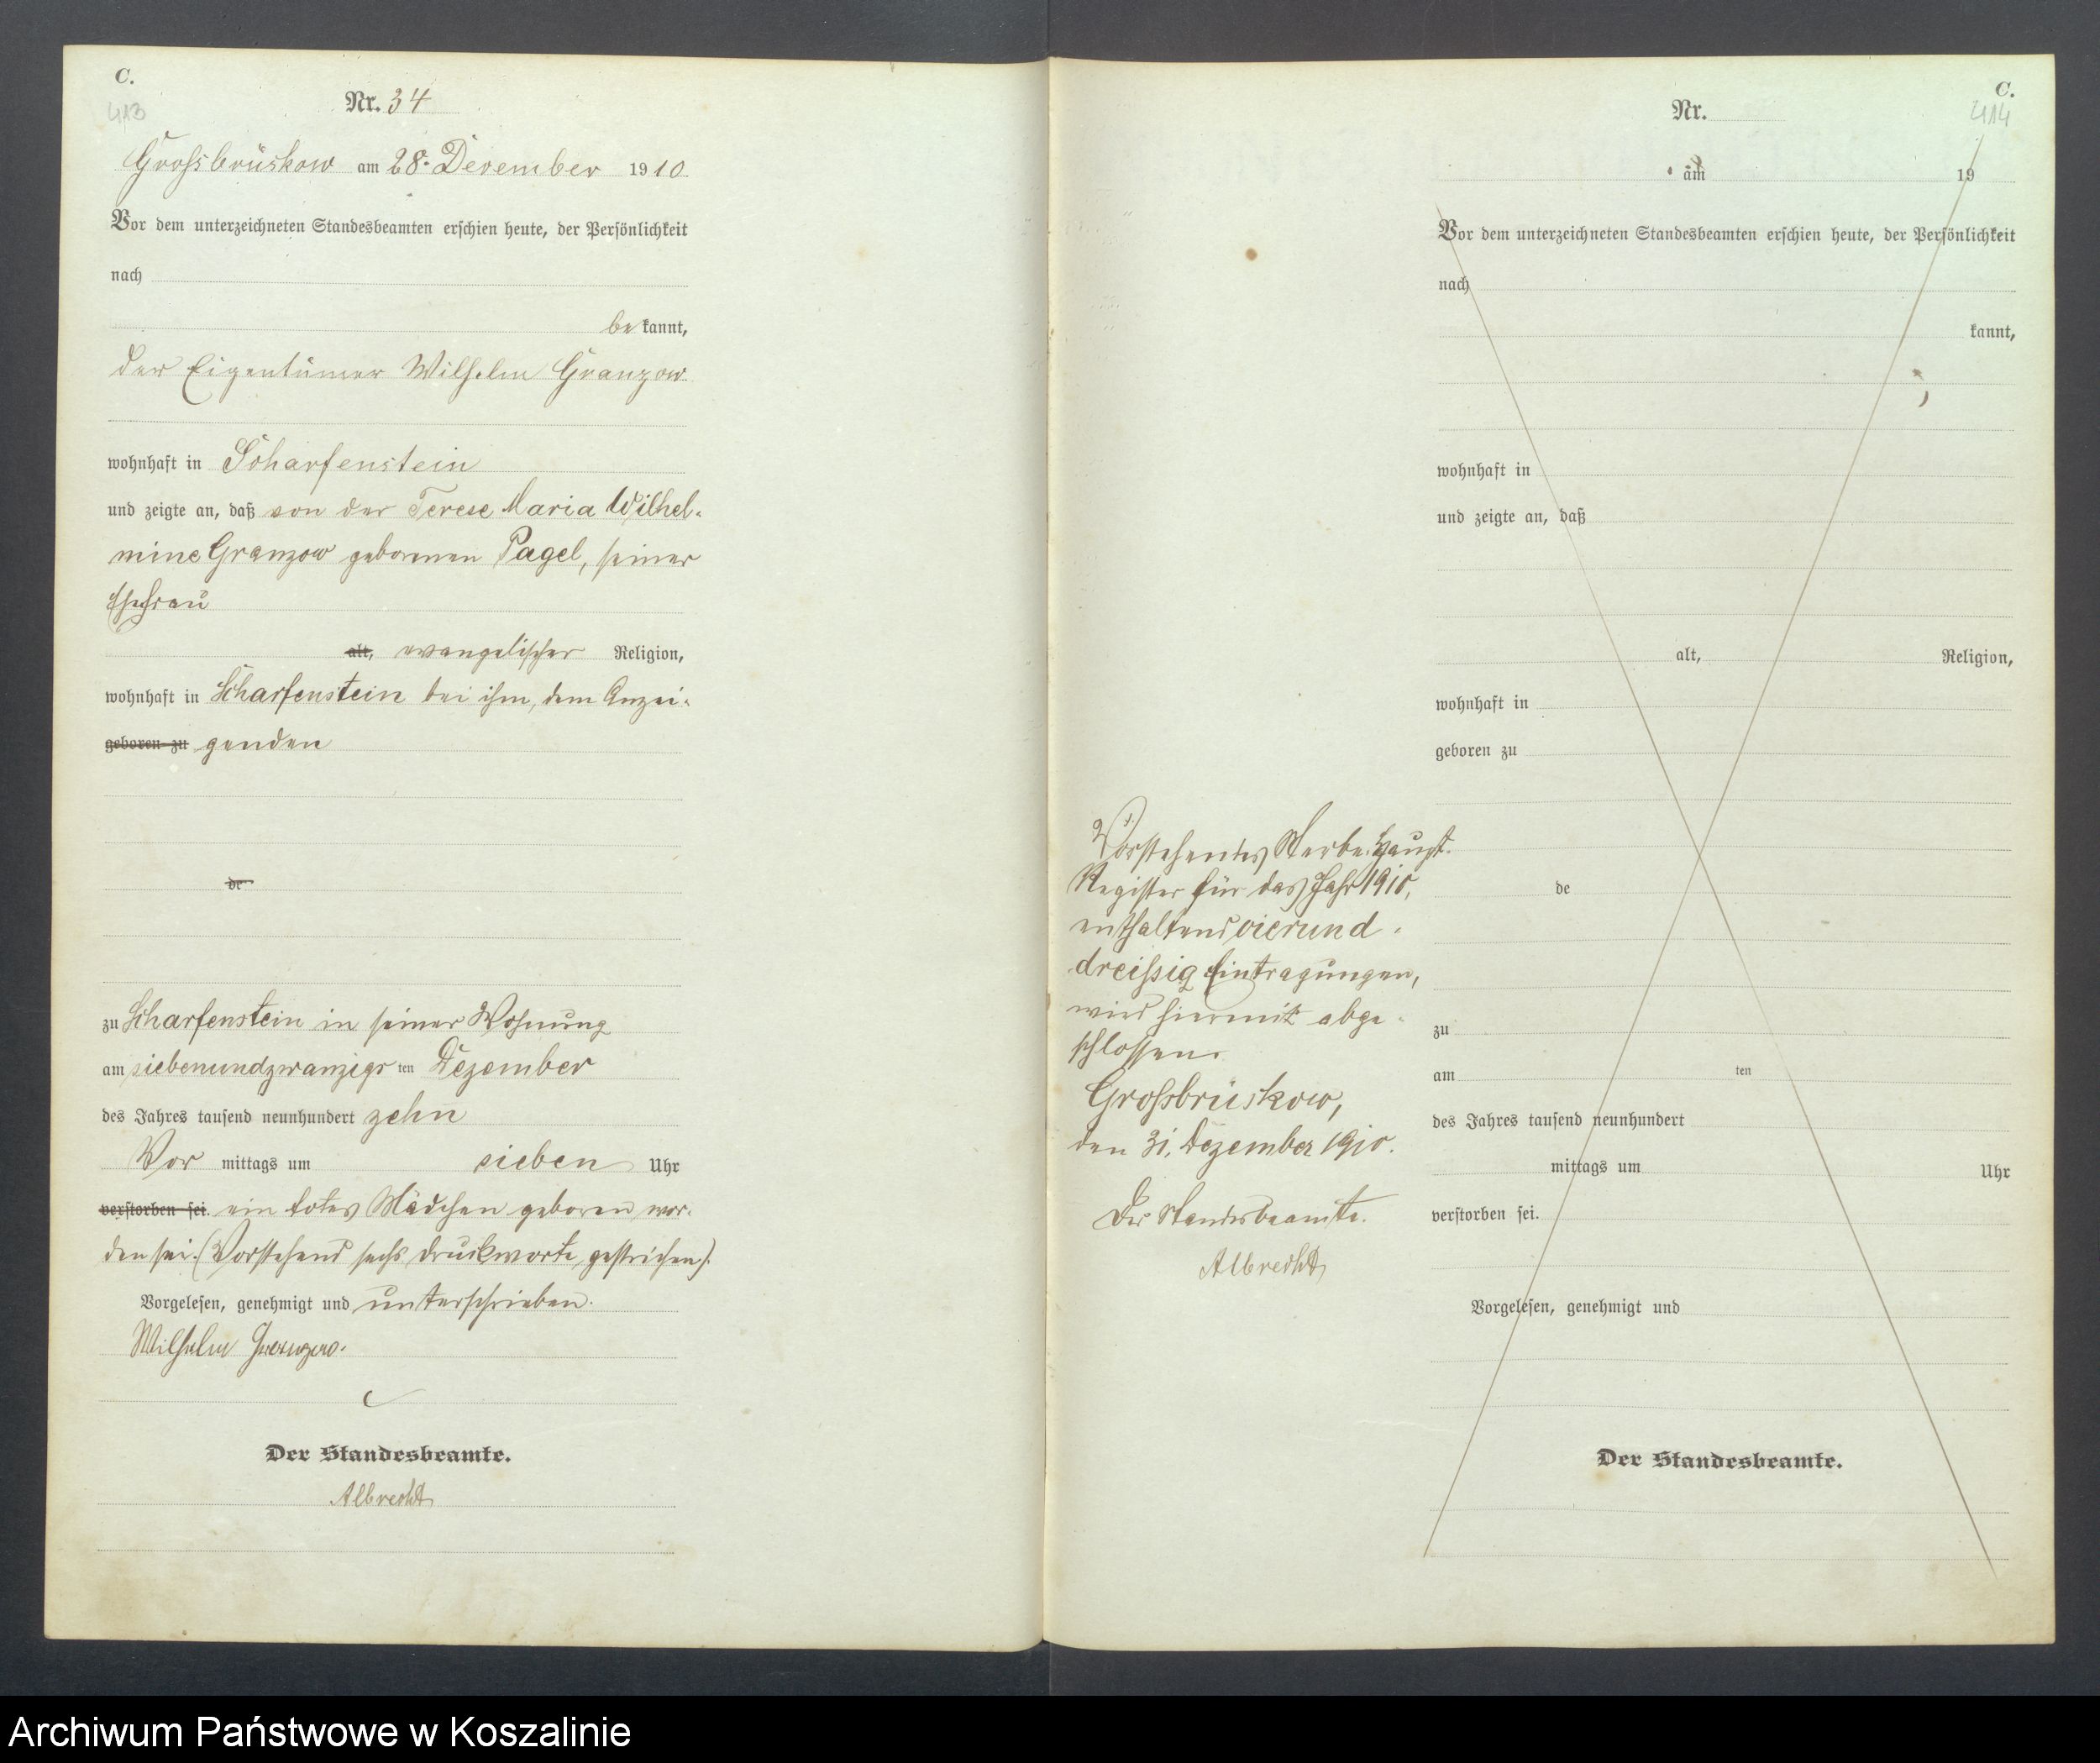 C.
413
Nr. 34
Grossbrüskow am 28. Dezember 1910
Vor dem unterzeichneten Standesbeamten erschien heute, der Persönlichkeit
nach
bekannt,
der Eigentümer Wilhelm Granzow
wohnhaft in Scharfenstein
und zeigte an, daß von der Terese Maria Wilhel-
mine Granzow geborenen Pagel, seiner
Ehefrau
alt, evangelischer Religion,
wohnhaft in Scharfenstein bei ihm, dem Anzei-
geboren zu genden
de
zu Scharfenstein in seiner Wohnung
am siebenundzwanzigsten Dezember
des Jahres tausend neunhundert zehn
Vormittags um sieben Uhr
verstorben sei. ein totes Mädchen geboren wor-
den sei. (Vorstehend sechs Druckworte gestrichen).
Vorgelesen, genehmigt und unterschrieben.
Wilhelm Granzow.
Der Standesbeamte.
Albrecht
C.
414
Nr.
am 19
Vor dem unterzeichneten Standesbeamten erschien heute, der Persönlichkeit
nach
kannt,
wohnhaft in
und zeigte an, daß
alt, Religion,
wohnhaft in
geboren zu
de
zu
am ten
des Jahres tausend neunhundert
mittags um Uhr
verstorben sei.
Vorgelesen, genehmigt und
Der Standesbeamte.
Vorstehendes Sterbe-Haupt-
Register für das Jahr 1910,
enthaltend vierund-
dreissig Eintragungen,
wird hiermit abge-
schlossen.
Grossbrüskow,
den 31. Dezember 1910.
Der Standesbeamte.
Albrecht
Archiwum Państwowe w Koszalinie